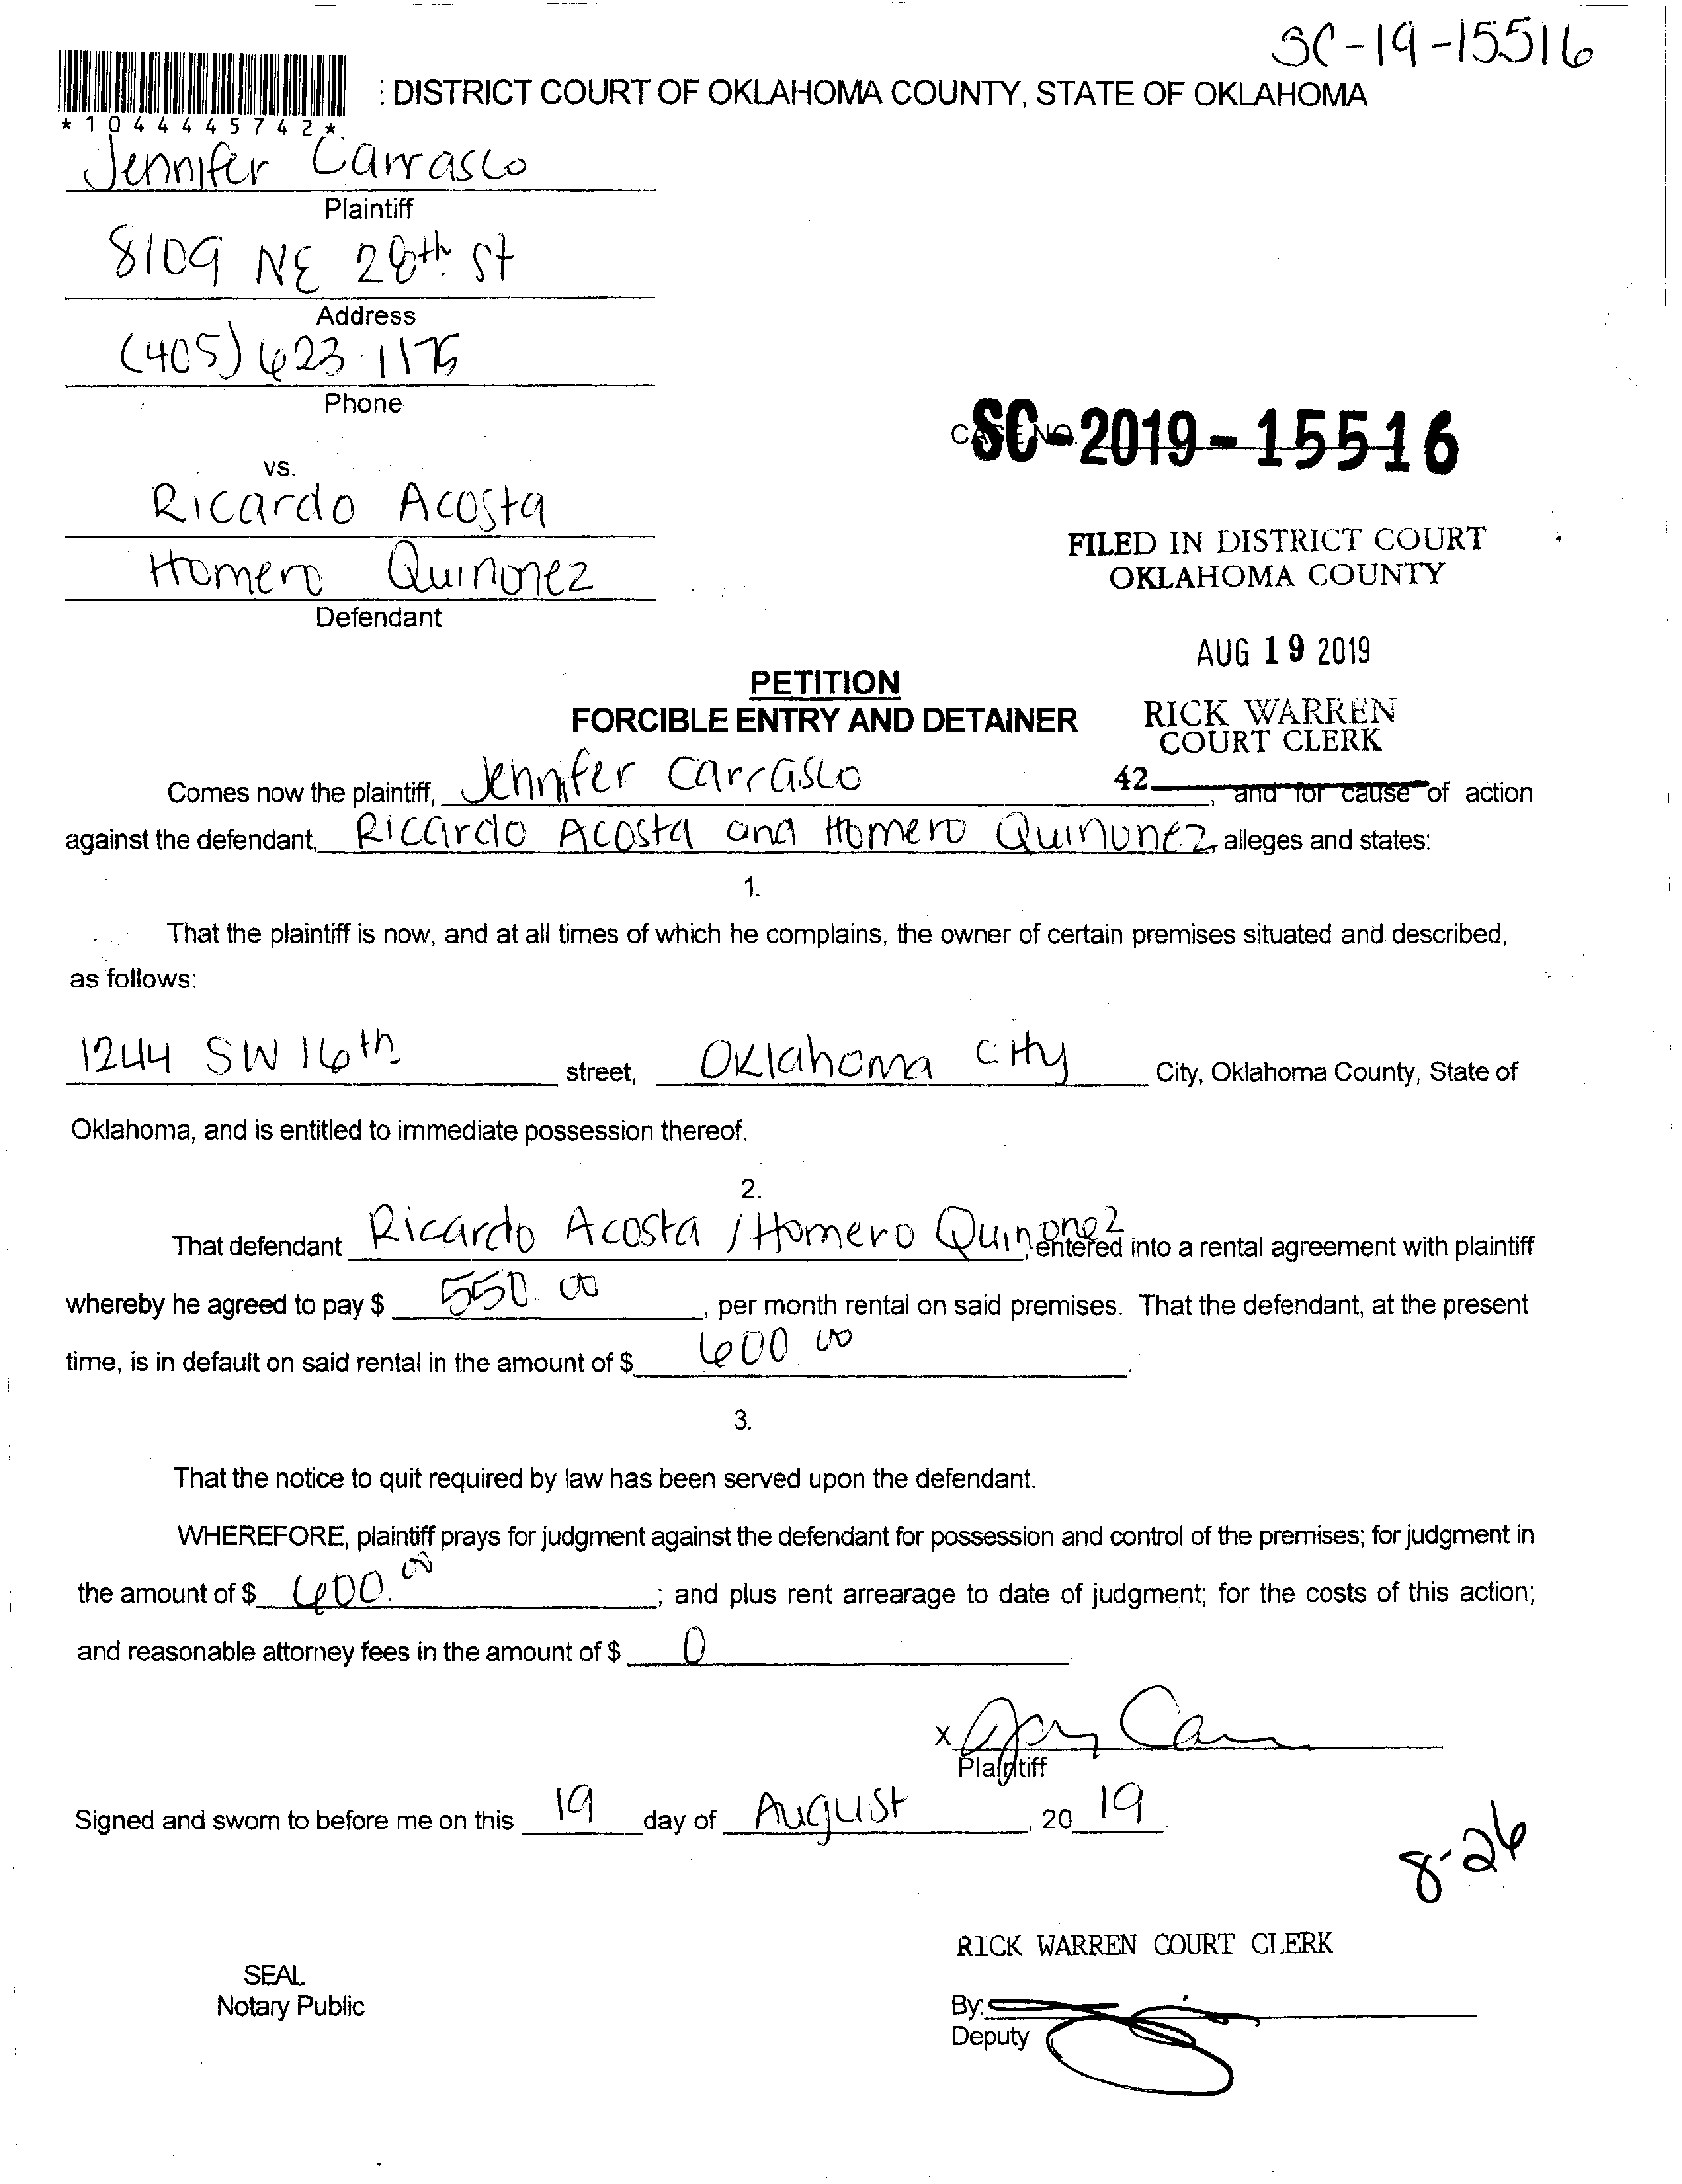 SC-19-15516
: DISTRICT COURT OF OKLAHOMA COUNTY, STATE OF OKLAHOMA
* 1 0 4 4 4 4 5 7 4 2 *
Jennifer Carrasco
Plaintiff
8109 NE 28th St
Address
(405) 623-1175
Phone
SC-2019-15516
vs.
Ricardo Acosta
Homero Quinonez
Defendant
FILED IN DISTRICT COURT
OKLAHOMA COUNTY
AUG 19 2019
RICK WARREN
COURT CLERK
42
PETITION
FORCIBLE ENTRY AND DETAINER
Comes now the plaintiff, Jennifer Carrasco, and for cause of action
against the defendant, Ricardo Acosta and Homero Quinonez, alleges and states:
1.
That the plaintiff is now, and at all times of which he complains, the owner of certain premises situated and described,
as follows:
1244 SW 16th street, Oklahoma City City, Oklahoma County, State of
Oklahoma, and is entitled to immediate possession thereof.
2.
That defendant Ricardo Acosta / Homero Quinonez, entered into a rental agreement with plaintiff
whereby he agreed to pay $ 550.00, per month rental on said premises. That the defendant, at the present
time, is in default on said rental in the amount of $ 600.00.
3.
That the notice to quit required by law has been served upon the defendant.
WHEREFORE, plaintiff prays for judgment against the defendant for possession and control of the premises; for judgment in
the amount of $ 600.00; and plus rent arrearage to date of judgment; for the costs of this action;
and reasonable attorney fees in the amount of $ 0.
x
Plaintiff
Signed and sworn to before me on this 19 day of August, 20 19.
8-26
RICK WARREN COURT CLERK
SEAL
Notary Public
By:
Deputy